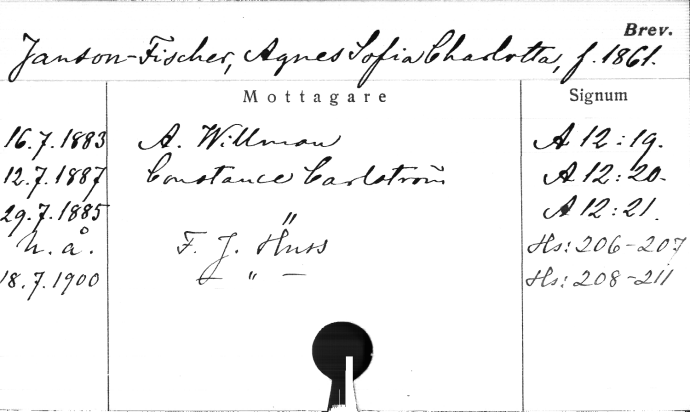 Brev.
Janson-Fischer, Agnes Sofia Charlotta, f. 1861.
Mottagare Signum
16.7.1883 A. Willman A 12:19.
12.7.1887 Constance Carlström A 12:20.
29.7.1885 " A 12:21.
n. å. F. J. Huss Hs: 206-207
18.7.1900 — " — Hs: 208-211